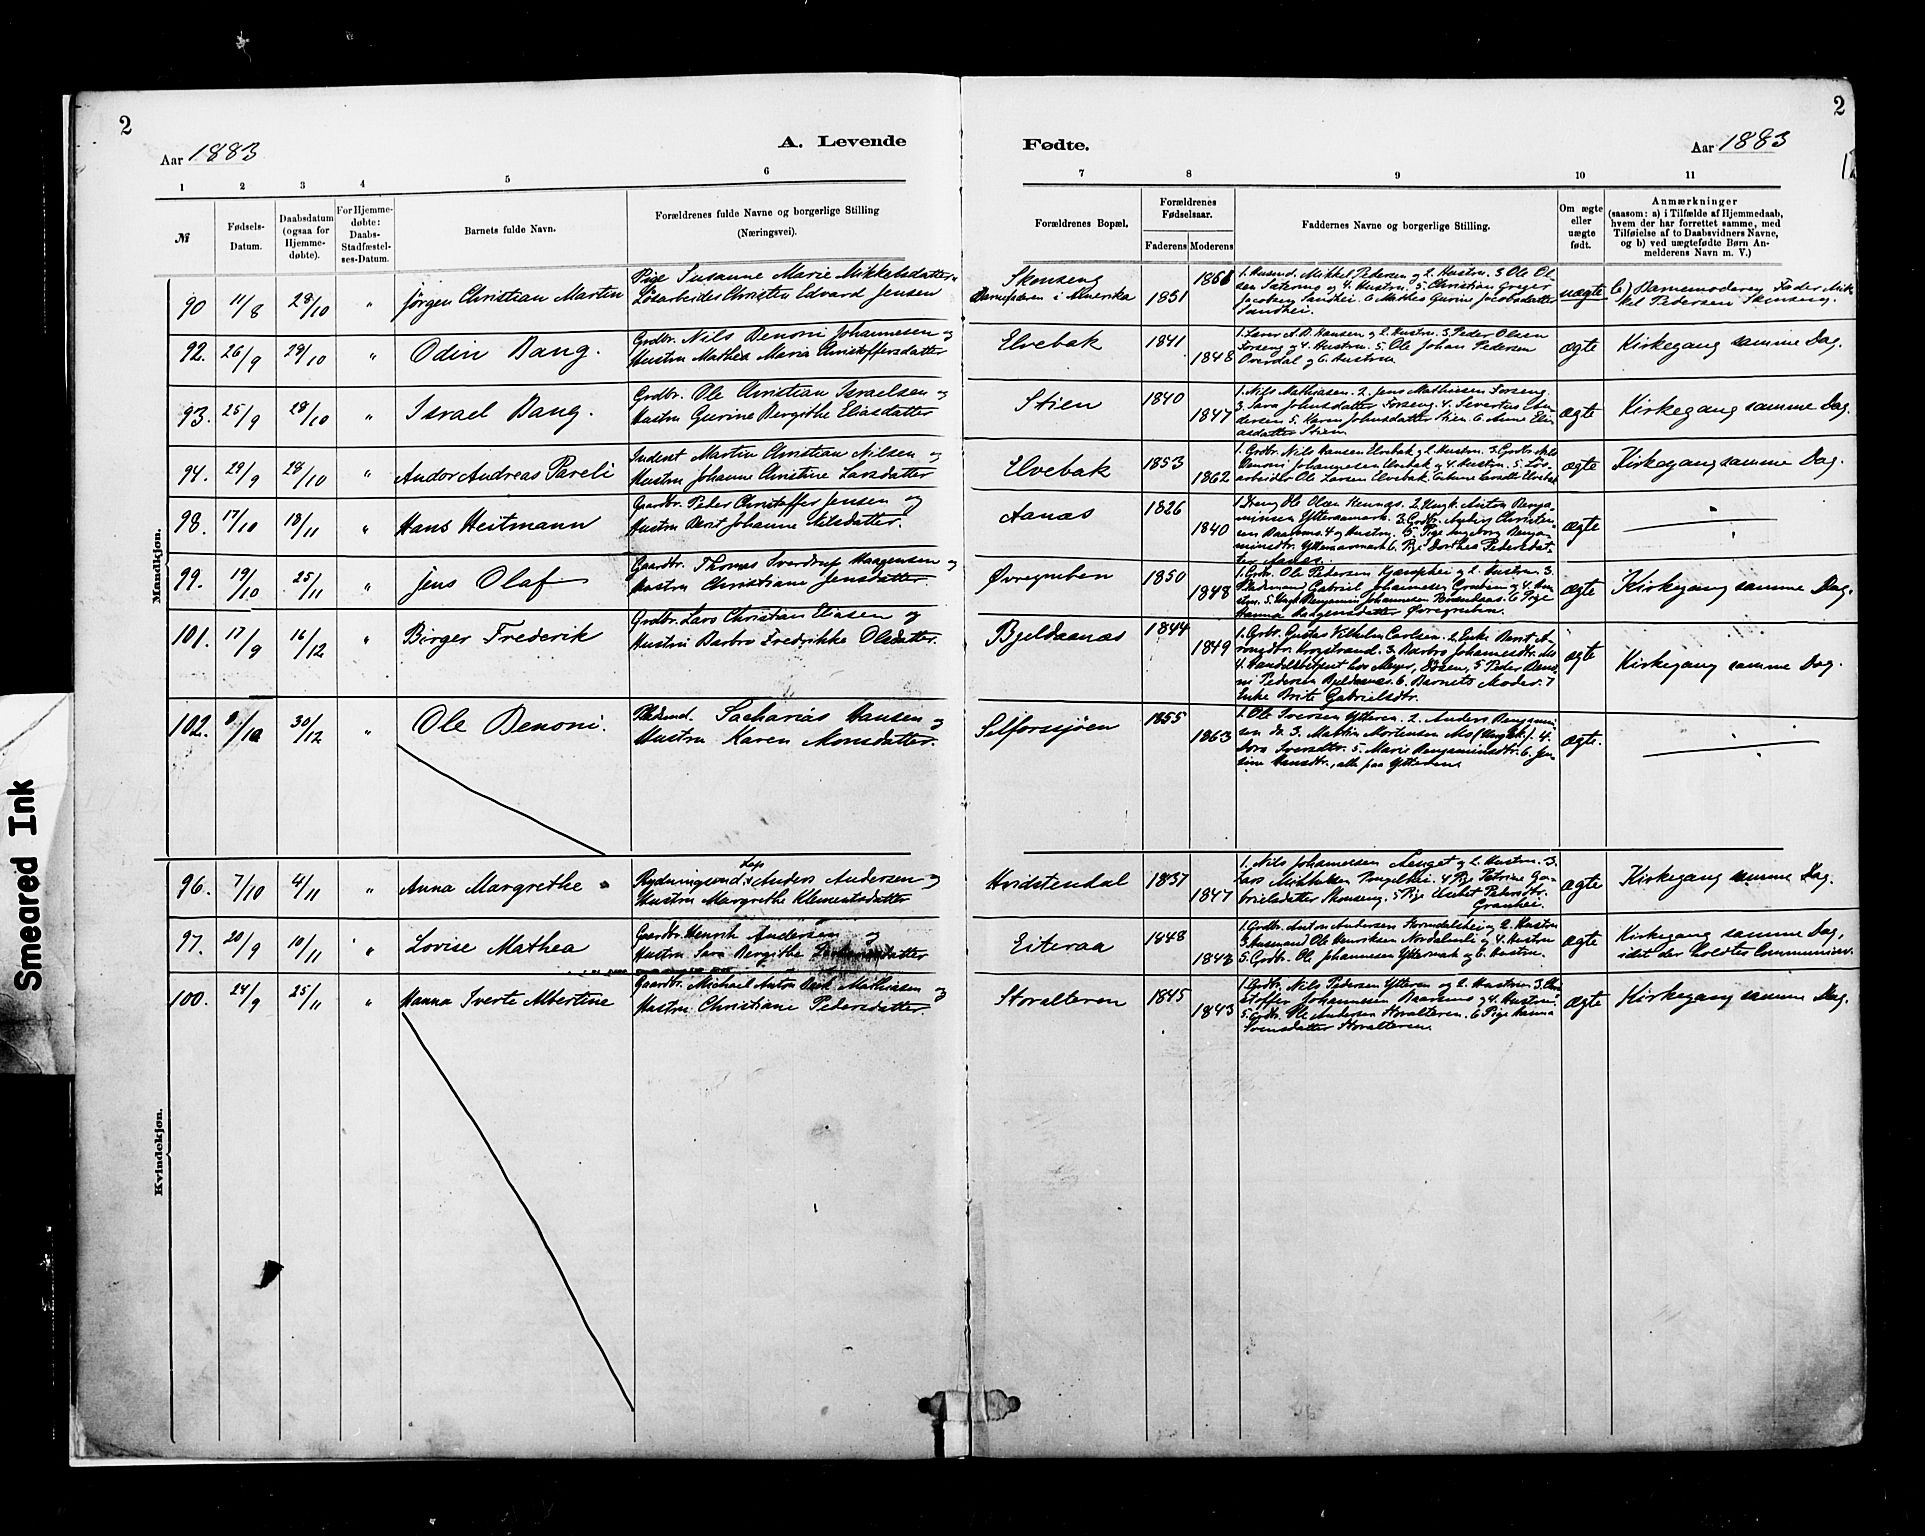 2
2
Aar 1883
A. Levende
Fødte.
Aar 1883
1 2 3 4 5 6 7 8 9 10 11
№
Fødsels-
Datum.
Daabsdatum
(ogsaa for
Hjemme-
døbte).
For Hjemme-
døbte:
Daabs-
Stadfæstel-
ses-Datum.
Barnets fulde Navn.
Forældrenes fulde Navne og borgerlige Stilling
(Næringsvei).
Forældrenes Bopæl.
Forældrenes
Fødselsaar.
Faderens
Moderens
Faddernes Navne og borgerlige Stilling.
Om ægte
eller
uægte
født.
Anmærkninger
(saasom: a) i Tilfælde af Hjemmedaab,
hvem der har forrettet samme, med
Tilføielse af to Daabsvidners Navne,
og b) ved uægtefødte Børn An-
melderens Navn m. V.)
Mandkjøn.
90 11/8 28/10 " Jørgen Christian Martin
Pige Susanne Marie Mikkelsdatter
Løsarbeider Christen Edvard Jensen
Skonseng
Barnefaderen i Amerika 1851
1. Husmd. Mikkel Pedersen og 2. Hustru. 3 Ole Ol-
Jacobsen Sandhei. 6 Mathea Gurine Jacobsdatter
Sandhei.
uægte
b) Barnemoderens Fader Mik-
kel Pedersen Skonseng.
92. 26/9 29/10 " Odin Bang.
Grdbr. Nils Benoni Johannesen og
Hustru Mathea Maria Christoffersdatter
Elvebak 1841 1848
1. Lærer A. B. Hansen og 2. Hustru. 3 Peder Olsen
Forseng og 4. Hustru. 5 Ole Johan Pedersen
Overdal og 6. Hustru.
ægte Kirkegang samme Dag.
93. 25/9 28/10 " Israel Bang.
Grdbr. Ole Christian Israelsen og
Hustru Gurine Bergithe Eliasdatter
Stien 1840 1847
1. Nils Mathiasen. 2. Jens Mathiasen Forseng
3. Sara Johnsdatter Forseng. 4. Sivertus
dersen 5. Karen Johnsdatter Stien 6 Anne Eli-
asdatter Stien
ægte Kirkegang samme Dag.
94. 29/9 28/10 " Andor Andreas Pareli
Inderst Martin Christian Nilsen og
Hustru Johanne Christine Larsdatter
Elvebak 1853 1862
1. Grdbr. Nils Hansen Elvebak og 2. Hustru. 3. Grdbr. Nils
Benoni Johannesen Elvebak og 4. Hustru. 5. Løs-
arbeider Ole Larsen Elvebak.
ægte Kirkegang samme Dag.
98. 17/10 18/11 " Hans Heitmann
Gaardbr. Peder Christoffer Jensen og
Hustru Berit Johanne Nilsdatter.
Aanæs 1826 1840
1. Dreng Ole Olsen 2. Ungk. Anton Benja-
minsen Ytteraamark. 3. Grdbr. Anders Christen-
sen og 4 Hustru. 5. Pige Ingeborg Benja-
minsdtr. Ytteraamark 6. Pige Dorthea Pedersdat-
ter Aanæs.
ægte
99. 19/10 25/11 " Jens Olaf
Gaardbr. Thomas Sverdrup Haagensen og
Hustru Christiane Jensdatter
Øvregruben 1850 1848
1. Grdbr. Ole Pedersen Kjæmphei og 2. Hustru 3.
Pladsmand Gabriel Johannesen Gruben og 4. Hu-
stru. 5. Ungk. Benjamin Johannesen 6 Pige
Hanna Øvregruben.
ægte Kirkegang samme Dag.
101. 17/9 16/12 " Birger Frederik
Grdbr. Lars Christian Eliasen og
Hustru Barbro Fredrikke Olsdatter.
Bjeldaanæs 1844 1849
1. Grbr. Gustav Vilhelm Carlsen. 2. Enke Berit A-
ronsdtr. Krogstrand. 3. Barbro Johannesdtr. Mo
4. Handelsbetjent Meyer, 5 Peder Beno-
ni Pedersen Bjeldaanæs. 6. Barnets Moder. 7
Enke Brite Gabrielsdtr.
ægte Kirkegang samme Dag.
102. /10 30/12 " Ole Benoni.
Pladsmd. Sacharias Hansen og
Hustru Karen Monsdatter.
Selforssjøen 1855 1863
1. Ole Iversen Ytteren. 2. Anders Benjamin-
sen do 3. Mathin Mortensen Mo (Ungk.). 4.
Sara Iversdtr. 5. Marie Benjaminsdtr. 6. Jen-
sine Hansdtr., alle paa Ytteren.
ægte.
Kvindekjøn.
96. 7/10 4/11 " Anna Margrethe
Lap
Rydningsmd. Anders Andersen og
Hustru Margrethe Klemetsdatter
Hvidstendal 1837 1847
1. Nils Johannesen og 2. Hustru. 3.
Lars Mikkelsen 4 Pige Petrine Ga-
brielsdatter Skonseng. 5 Pige Pedersdtr.
Granhei.
ægte Kirkegang samme Dag.
97. 20/9 10/11 " Lovise Mathea
Gaardbr. Henrik Andersen og
Hustru Sara Bergithe
Eiteraa 1848 1843
1. Grdbr. Anton Andersen Stormdalshei og 2. Hustru
3 Husmand Ole Henriksen Nordalsli og 4. Hustru
5. Grdbr. Ole Johannesen Yttermark og 6. Hustru.
ægte Kirkegang samme Dag,
idet der holdtes Communion.
100. 24/9 25/11 " Hanna Iverte Albertine
Gaardbr. Michael Anton Mathisen og
Hustru Christiane Pedersdatter
Storalteren 1845 1843
1. Grdbr. Nils Pedersen Ytteren og 2. Hustru 3. Chri-
stoffer Johannesen og 4. Hustru.
5. Grdbr. Ole Andersen Storalteren. 6 Pige Hanna
Svensdatter Storalteren.
ægte Kirkegang samme Dag.
Smeared Ink